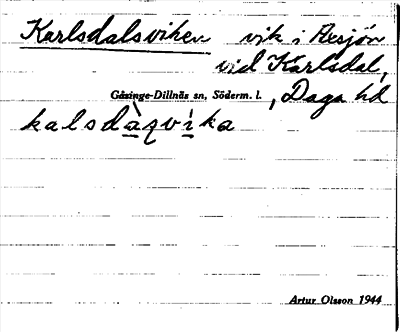 Karlsdalsviken vik i Axsjön
vid Karlsdal,
Gåsinge-Dillnäs sn, Söderm. l. , Daga hd
kalsdàqvìka
Artur Olsson 1944